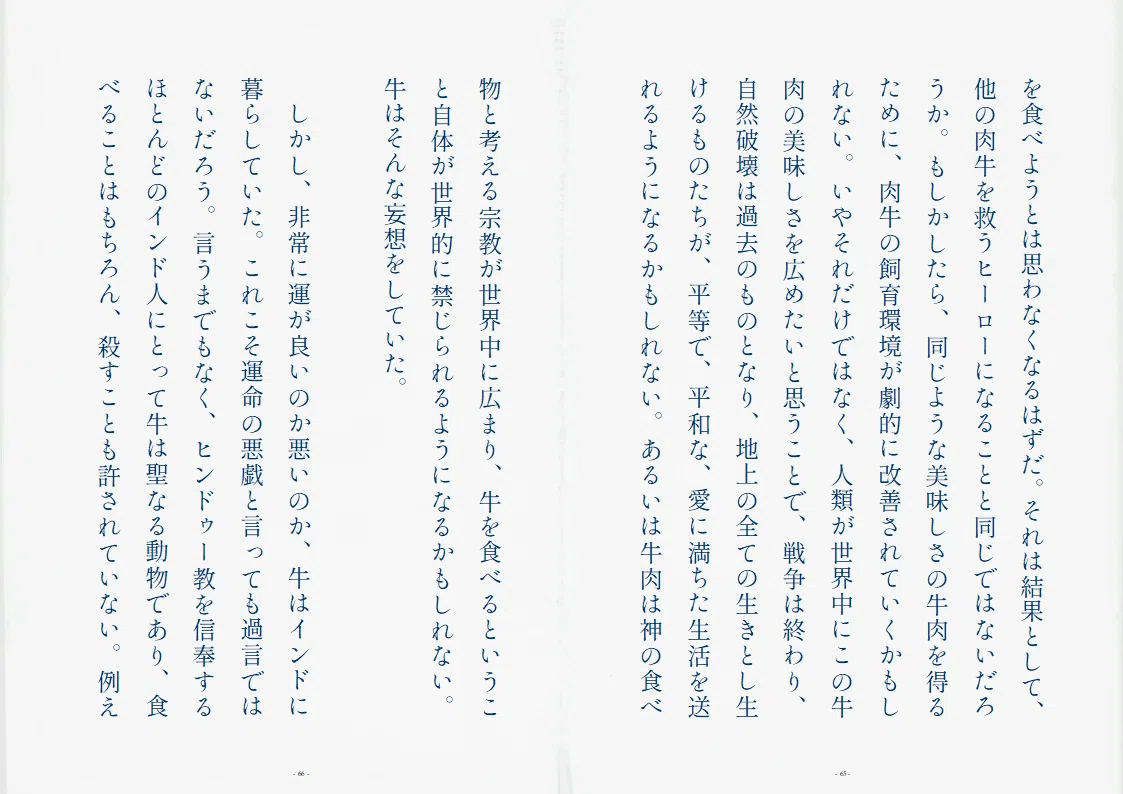 を食べようとは思わなくなるはずだ。それは結果として、
他の肉牛を救うヒーローになることと同じではないだろ
うか。もしかしたら、同じような美味しさの牛肉を得る
ために、肉牛の飼育環境が劇的に改善されていくかもし
れない。いやそれだけではなく、人類が世界中にこの牛
肉の美味しさを広めたいと思うことで、戦争は終わり、
自然破壊は過去のものとなり、地上の全ての生きとし生
けるものたちが、平等で、平和な、愛に満ちた生活を送
れるようになるかもしれない。あるいは牛肉は神の食べ
- 65 -
物と考える宗教が世界中に広まり、牛を食べるというこ
と自体が世界的に禁じられるようになるかもしれない。
牛はそんな妄想をしていた。
しかし、非常に運が良いのか悪いのか、牛はインドに
暮らしていた。これこそ運命の悪戯と言っても過言では
ないだろう。言うまでもなく、ヒンドゥー教を信奉する
ほとんどのインド人にとって牛は聖なる動物であり、食
べることはもちろん、殺すことも許されていない。例え
- 66 -